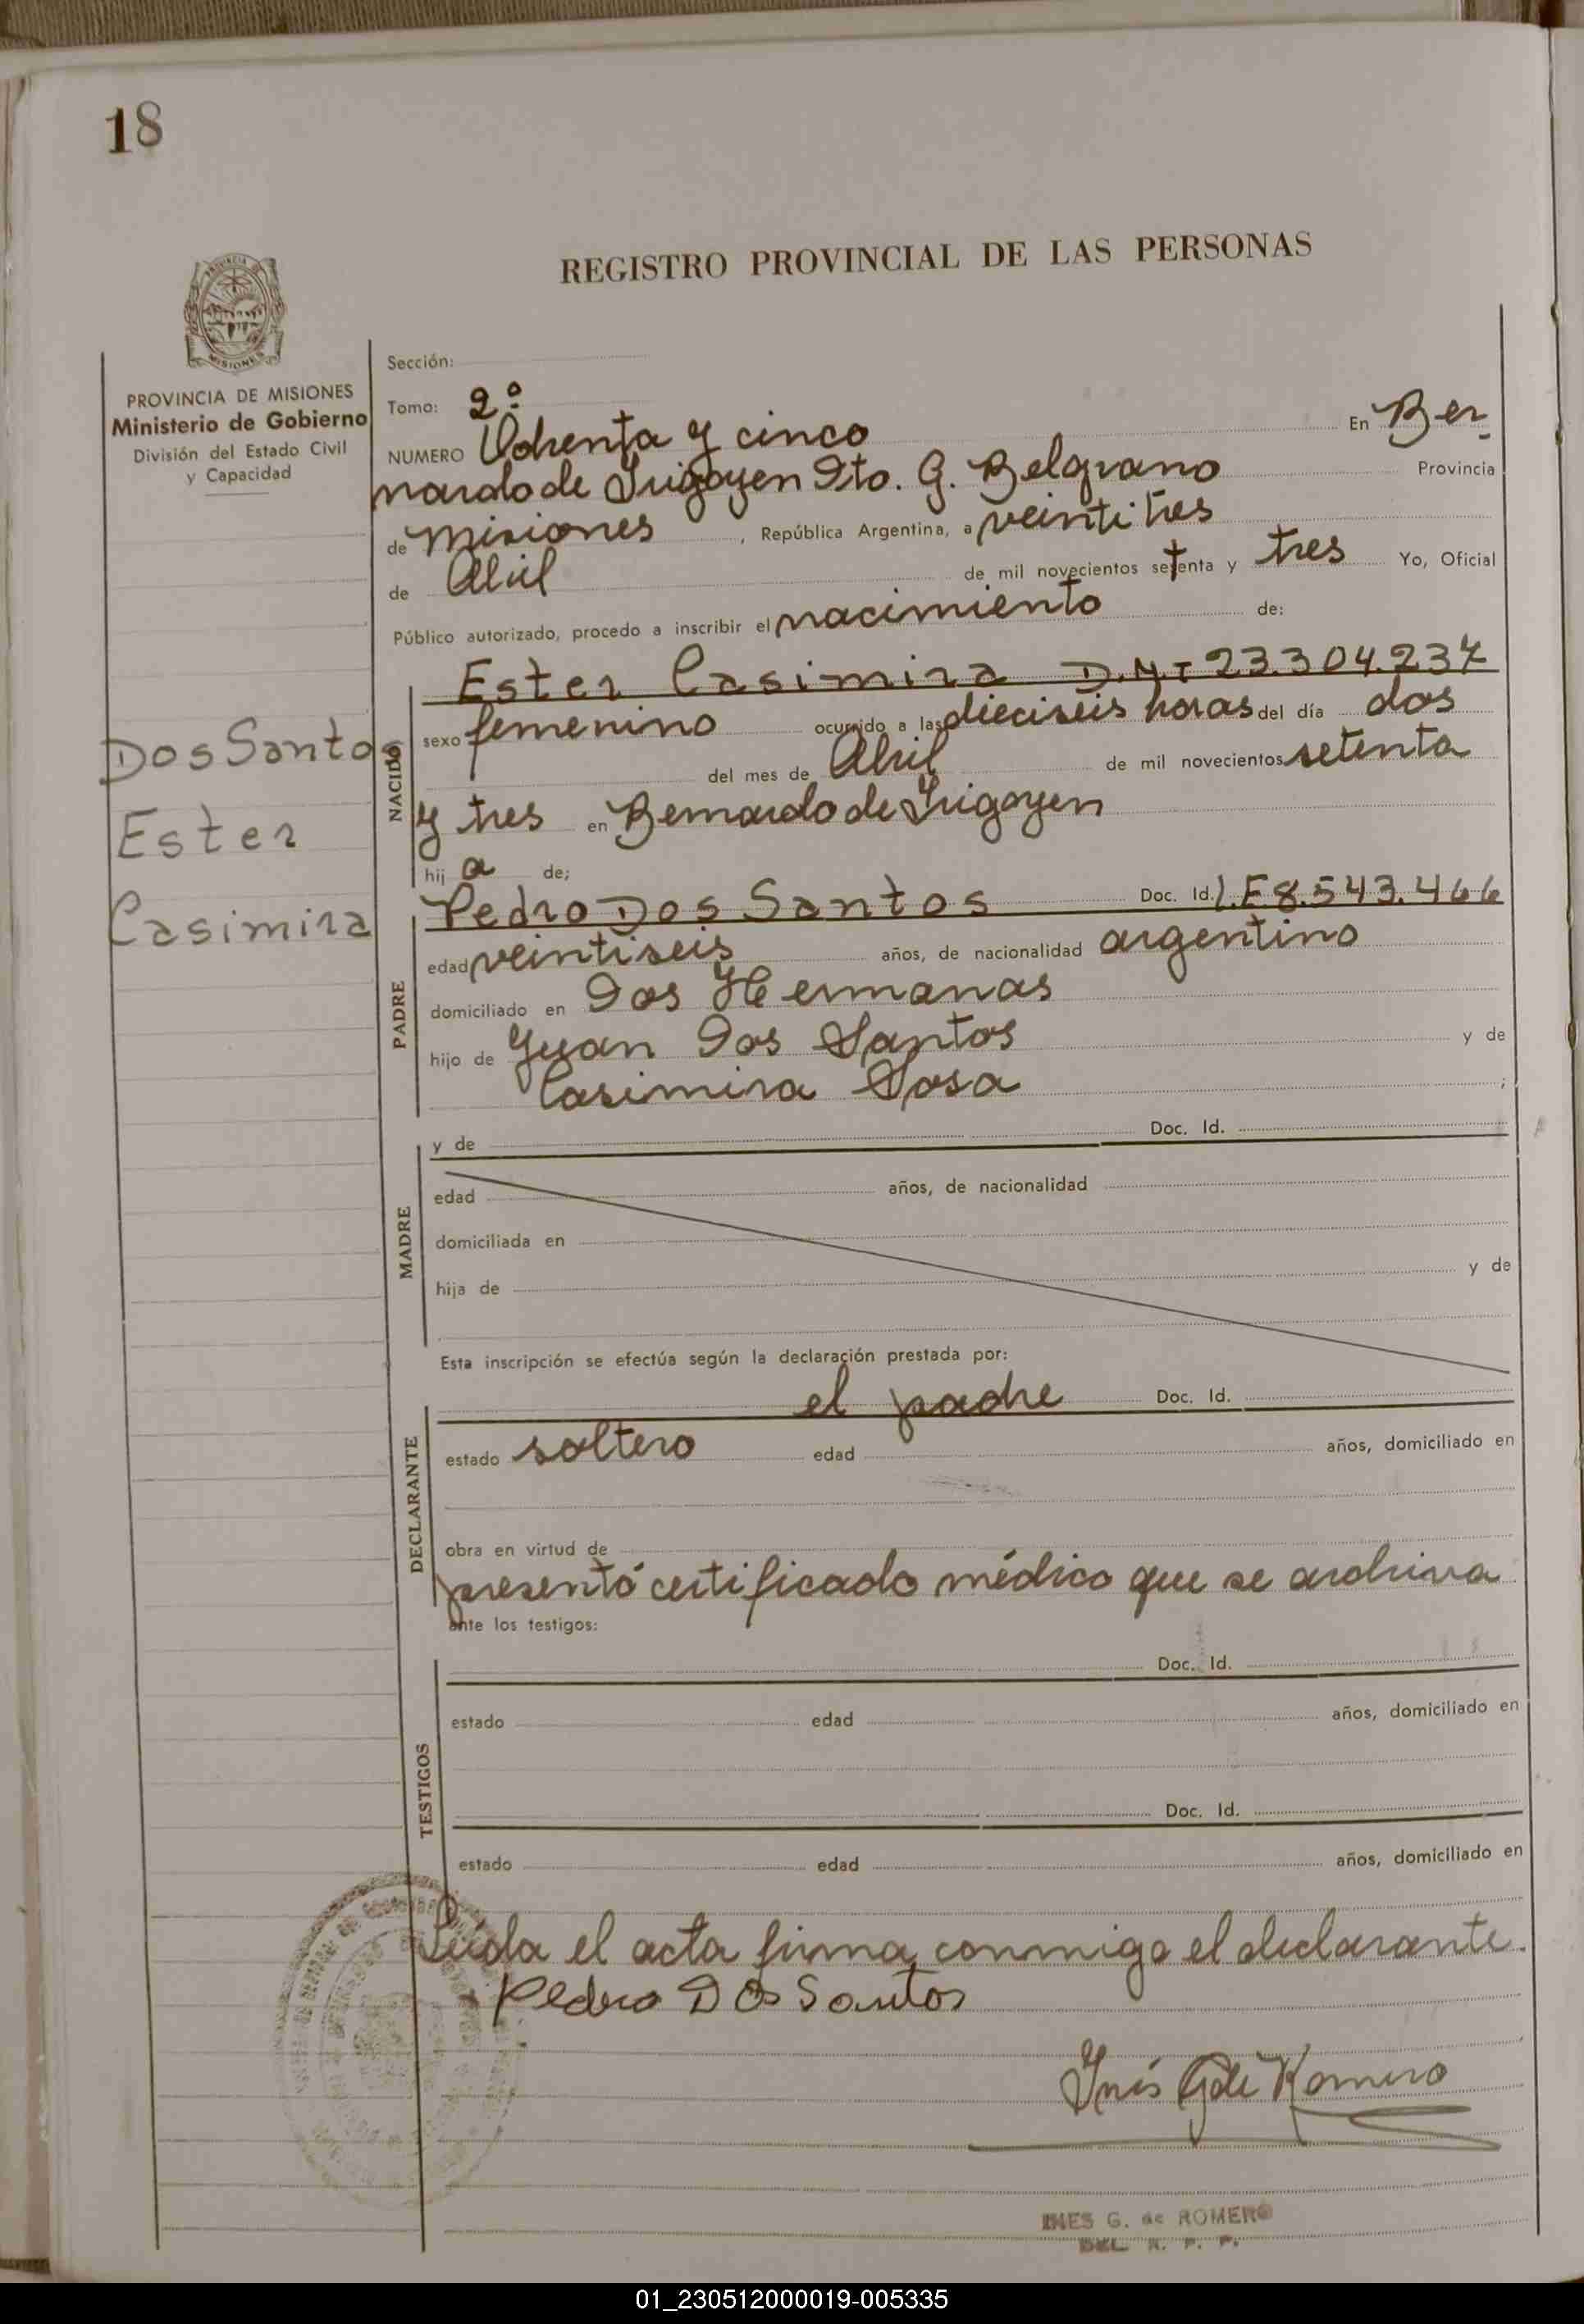 18
REGISTRO PROVINCIAL DE LAS PERSONAS
PROVINCIA DE MISIONES
Ministerio de Gobierno
División del Estado Civil
y Capacidad
Sección:
Tomo: 2º
NUMERO Ochenta y cinco En Ber-
nardo de Irigoyen Dto. G. Belgrano Provincia
de Misiones, República Argentina, a veintitres
de Abril de mil novecientos setenta y tres Yo, Oficial
Público autorizado, procedo a inscribir el nacimiento de:
NACIDO
Ester Casimira D.N.I 23.304.237
sexo femenino ocurrido a las dieciseis horas del día dos
del mes de Abril de mil novecientos setenta
y tres en Bernardo de Irigoyen
hij a de;
Dos Santos
Ester
Casimira
PADRE
Pedro Dos Santos Doc. Id. L.E 8.543.466
edad veintiseis años, de nacionalidad argentino
domiciliado en Dos Hermanas
hijo de Juan Dos Santos y de
Casimira Sosa ;
MADRE
y de Doc. Id.
edad años, de nacionalidad
domiciliada en
hija de y de
Esta inscripción se efectúa según la declaración prestada por:
DECLARANTE
el padre Doc. Id.
estado soltero edad años, domiciliado en
obra en virtud de
presentó certificado médico que se archiva
ante los testigos:
TESTIGOS
Doc. Id.
estado edad años, domiciliado en
Doc. Id.
estado edad años, domiciliado en
Leída el acta firma conmigo el declarante.
Pedro Dos Santos
Inés G de Romero
INES G. de ROMERO
DEL. R. P. P.
01_230512000019-005335